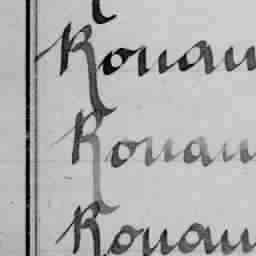 Rouau
Rouau
Rouau